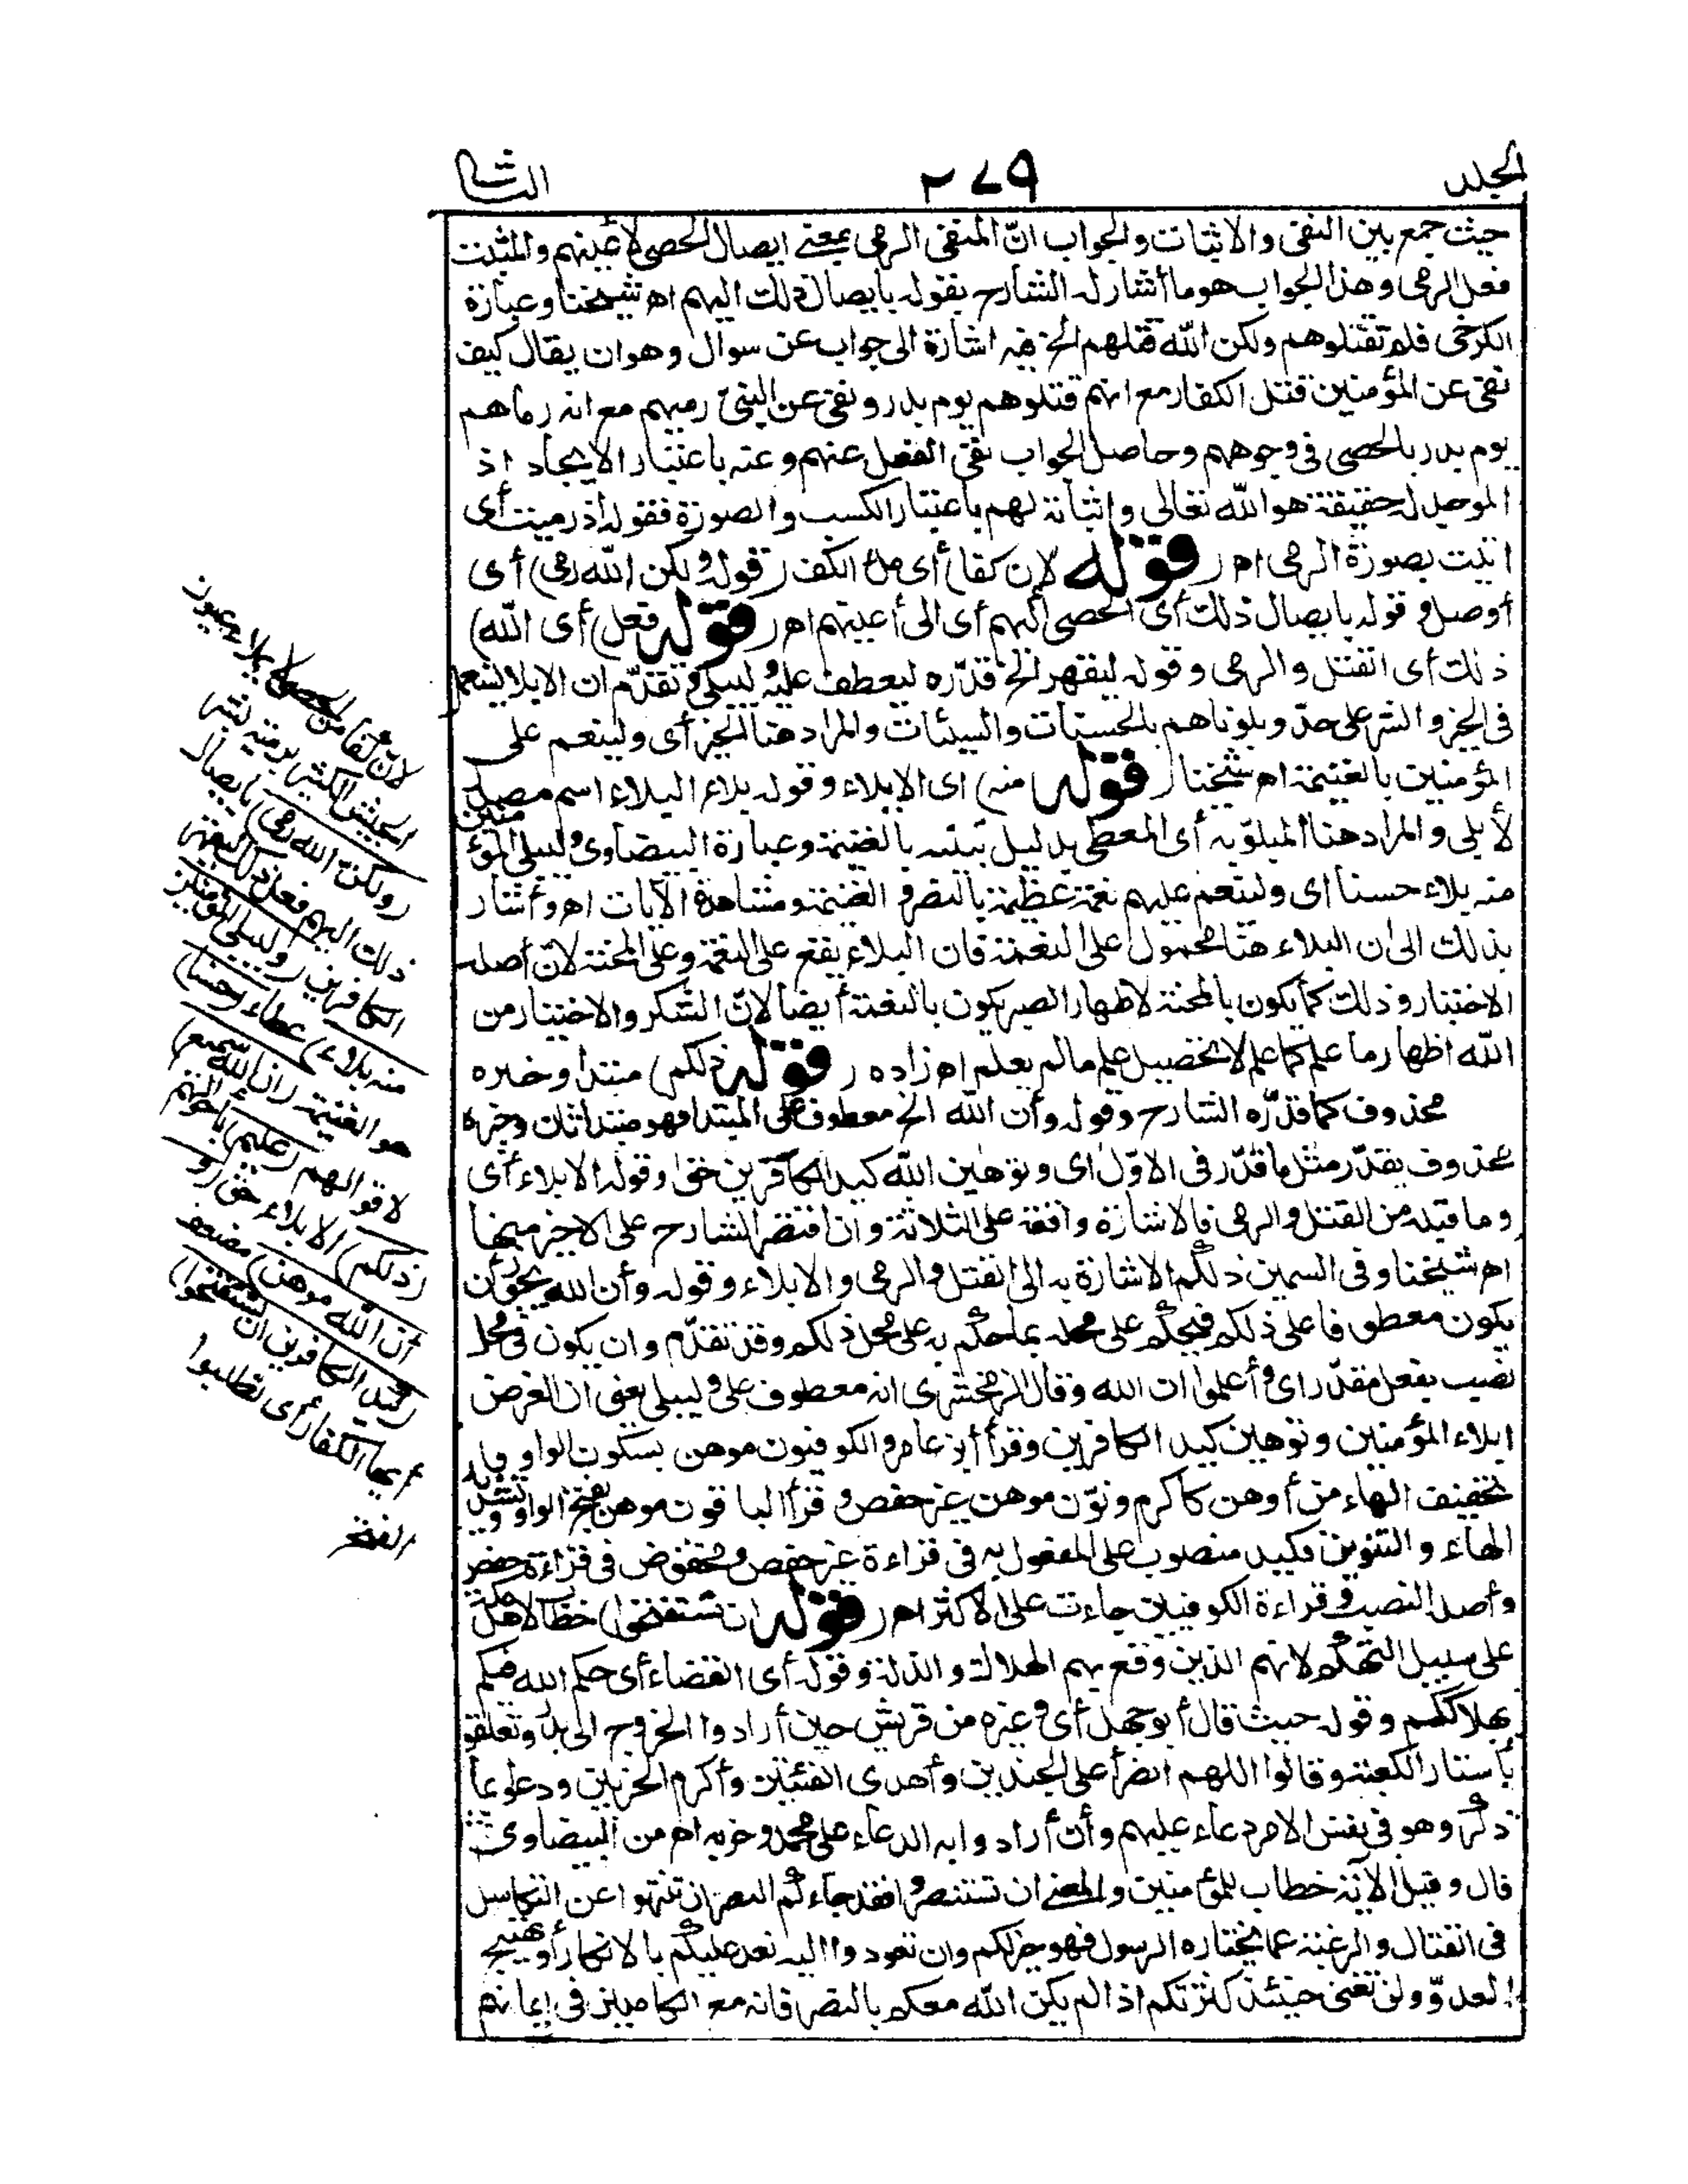 المجلد ٢٧٩ الثانى
حيث جمع بين النفى والاثبات والجواب انّ المنفى الرمى بمعنى ايصال الحصى لأعينهم والمثبت
فعل الرمى وهذا الجواب هو ما أشار له الشارح بقوله بايصال ذلك اليهم اه شيخنا وعبارة
الكرخى فلم تقتلوهم ولكن الله قتلهم الخ فيه اشارة الى جواب عن سوال وهو ان يقال كيف
نفى عن المؤمنين قتل الكفار مع انهم قتلوهم يوم بدر ونفى عن النبىّ رميهم مع انه رماهم
يوم بدر بالحصى فى وجوههم وحاصل الجواب نفى الفعل عنهم وعنه باعتبار الايجاد اذ
الموجد له حقيقة هو الله تعالى واثباته لهم باعتبار الكسب والصورة فقوله اذ رميت أى
اتيت بصورة الرمى اه (قوله لان كفا) أى ملء الكف (قوله ولكن الله رمى) أى
أوصل وقوله بايصال ذلك أى الحصى اليهم أى الى أعينهم اه (قوله فعل) أى الله)
ذلك أى القتل والرمى وقوله ليقهر الخ قدّره ليعطف عليه وليبلى وتقدّم ان الابلا يستعمل
فى الخير والشر على حدّ وبلوناهم بالحسنات والسيئات والمراد هنا الخير أى ولينعم على
المؤمنين بالغنيمة اه شيخنا (قوله منه) اى الابلاء وقوله بلاء البلاء اسم مصدر
لأبلى والمراد هنا المبلوّ به أى المعطى بدليل بينه بالغنيمة وعبارة البيضاوى وليبلى المؤمنين
منه بلاء حسنا اى ولينعم عليهم نعمة عظيمة بالنصر و الغنيمة ومشاهدة الآيات اه وأشار
بذلك الى ان البلاء هنا محمول على النعمة فان البلاء يقع على النعمة وعلى المحنة لانّ أصله
الاختبار وذلك كما يكون بالمحنة لاظهار الصبر يكون بالنعمة أيضا لانّ الشكر والاختبار من
الله اظهار ما علم كما علم لا تحصيل علم ما لم يعلم اه زاده (قوله ذلكم) مبتدا وخبره
محذوف كما قدّره الشارح وقوله وأن الله الخ معطوف على المبتدا فهو مبتدا ثان وخبره
محذوف يقدّر مثل ما قدّر فى الاوّل اى وتوهين الله كيد الكافرين حق وقوله الابلاء أى
وما قبله من القتل والرمى فالاشارة واقعة على الثلاثة وان اقتصر الشارح على الاخير منها
اه شيخنا وفى السمين ذلكم الاشارة به الى القتل والرمى والابلاء وقوله وأن الله يجوز أن
يكون معطوفا على ذلكم فيحكم على محله بما حكم به على محل ذلكم وقد تقدّم وان يكون فى محل
نصب بفعل مقدّر اى وأعلموا ان الله وقال الزمخشرى انه معطوف على وليبلى يعنى ان الغرض
ابلاء المؤمنين وتوهين كيد الكافرين وقرأ ابن عامر والكوفيون موهن بسكون الواو و
تخفيف الهاء من أوهن كأكرم ونوّن موهن غير حفص وقرأ الباقون موهن بفتح الواو وتشديد
الهاء والتنوين فكيد منصوب على المفعول به فى قراءة غير حفص ومخفوض فى قراءة حفص
وأصله النصب وقراءة الكوفيين جاءت على الاكثر اه (قوله ان تستفتحوا) خطاب لاهل مكة
على سبيل التهكم لانهم الذين وقع بهم الهلاك والذلة وقوله أى القضاء أى حكم الله فيكم
بهلاككم وقوله حيث قال أبو جهل أى وغيره من قريش حين أرادوا الخروج الى بدر وتعلقوا
بأستار الكعبة وقالوا اللهم انصر أعلى الجندين وأهدى الفئتين وأكرم الحزبين ودعوا بما
ذكر وهو فى نفس الامر دعاء عليهم وأن أرادوا به الدعاء على محمد وحزبه اه من البيضاوى ثم
قال وقيل الآية خطاب للمؤمنين والمعنى ان تستنصروا فقد جاءكم النصر ان تنتهوا عن التكاسل
فى القتال والرغبة عما يختاره الرسول فهو خير لكم وان تعودوا اليه نعد عليكم بالانكار أو تهييج
العدوّ ولن تغنى حينئذ كثرتكم اذا لم يكن الله معكم بالنصر فانه مع الكاملين فى ايمانهم
لانّ كفا من الحصى لا يملا عيون
الجيش الكثير برمية بشر
(ولكنّ الله رمى) بايصال
ذلك اليهم فعل ذلك ليقهر
الكافرين (وليبلى المؤمنين
منه بلاء) عطاء (حسنا)
هو الغنيمة (ان الله سميع)
لاقوالهم (عليم) بأحوالهم
(ذلكم) الابلاء حق (و
أن الله موهن) مضعف
(كيد الكافرين ان تستفتحوا)
أيها الكفار أى تطلبوا
الفتح